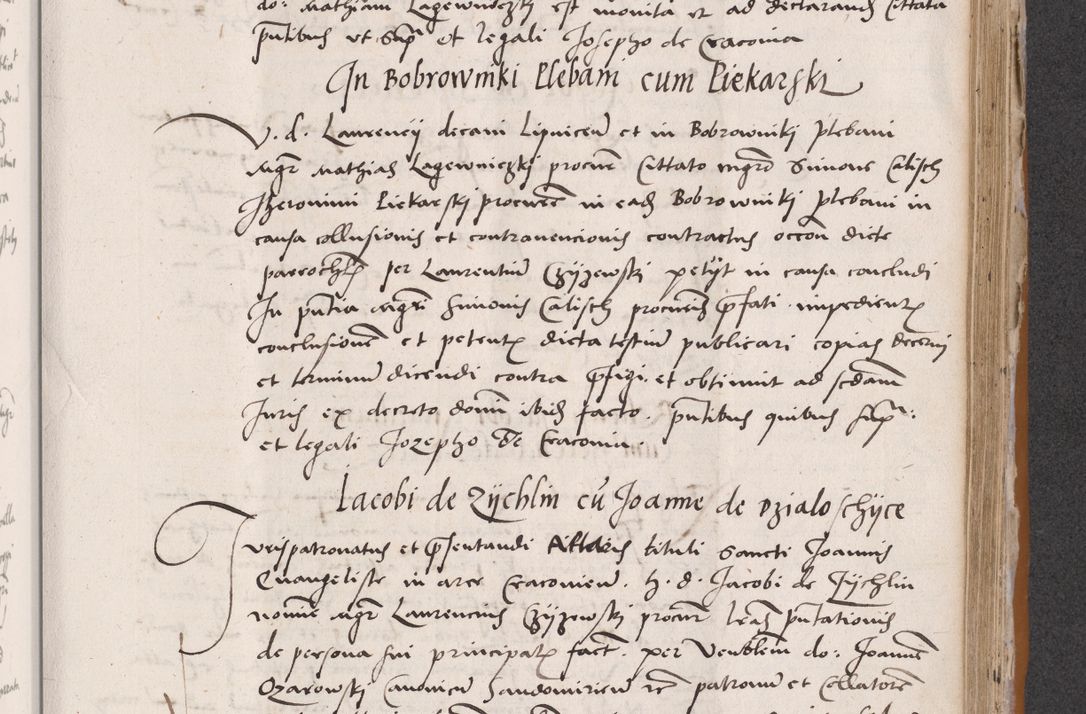 do: Mathiam Lagewniczkj est monita et ad declarand Cittata
pntibus ut Supra et legali Josepho de Cracovia
In Bobrowniki Plebani cum Piekarski
V. d. Laurencij decani Lipnicen et in Bobrowniki Plebani
Mgr Mathias Lagewniczkj procur Cittato mgro Simone Calisch
Hieronimi Piekarskj procures in ead Bobrowniki Plebani in
causa collusionis et contravencionis contractus occon dicte
parrochie per Laurentium Czijzewskj petijt in causa concludi
In pntia Mgri Simonis Calisch procuris prefati impedientis
conclusionem et petentis dicta testium publicari copias decerni
et terminum dicendi contra prefigi et obtinuit ad scdam
Juris ex decreto domini ibid facto. pntibus quibus supra:
et legali Jozepho de Cracovia.
Jacobi de Zijchlin cu Joanne de Dzialoschijce
Jurispatronatus et presentandi Altaris tituli Sancti Joannis
Evangeliste in arce Cracovien. h. d. Jacobi de Zijchlin
nomine Mgr Laurencius Czijzewskj procur lras pntationis
de persona sui principalis fact. per Venblem do: Joannem
Ozarowskj Canonicum Sandomirien patronum et Collatorem